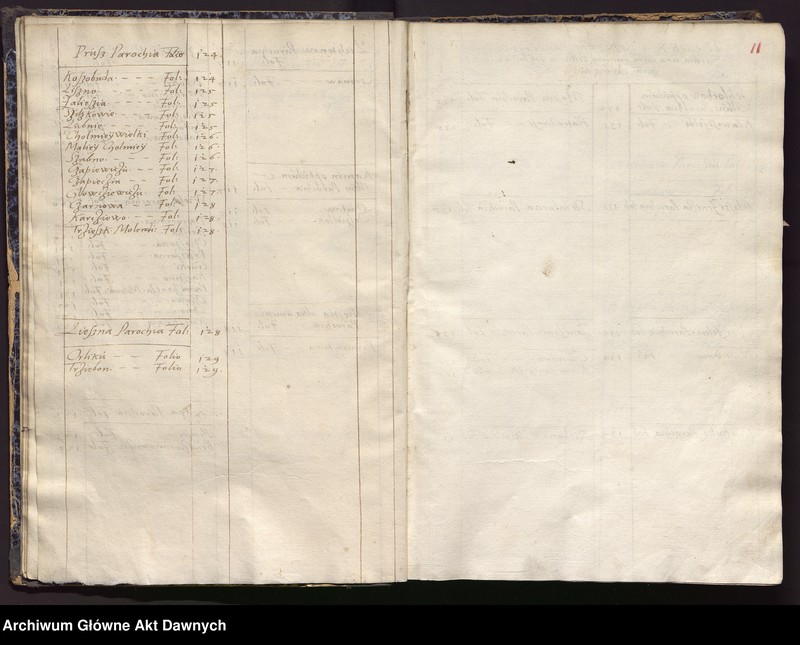 Prusz Parochia Folio 124
Kossobuda - - - Fol: 124
Lyszno - - - Fol: 125
Zalieszia - - Fol: 125
Fol: 125
Lubnie - - - Fol: 125
Cholmiczy wielki Fol: 126
Maliey Cholmiczy Fol: 126
Szabno - - - Fol: 126
Czapiewizu - - Fol: 127
Czapieczin - - Fol: 127
Glowcziewizu Fol: 127
Czarnowa - - Fol: 128
Karcziewo - - Fol: 128
Fol: 128
Lieszna Parochia Fol: 128
Orliku - - - Folio 129
Trziebon - - Folio 129
11
Archiwum Główne Akt Dawnych